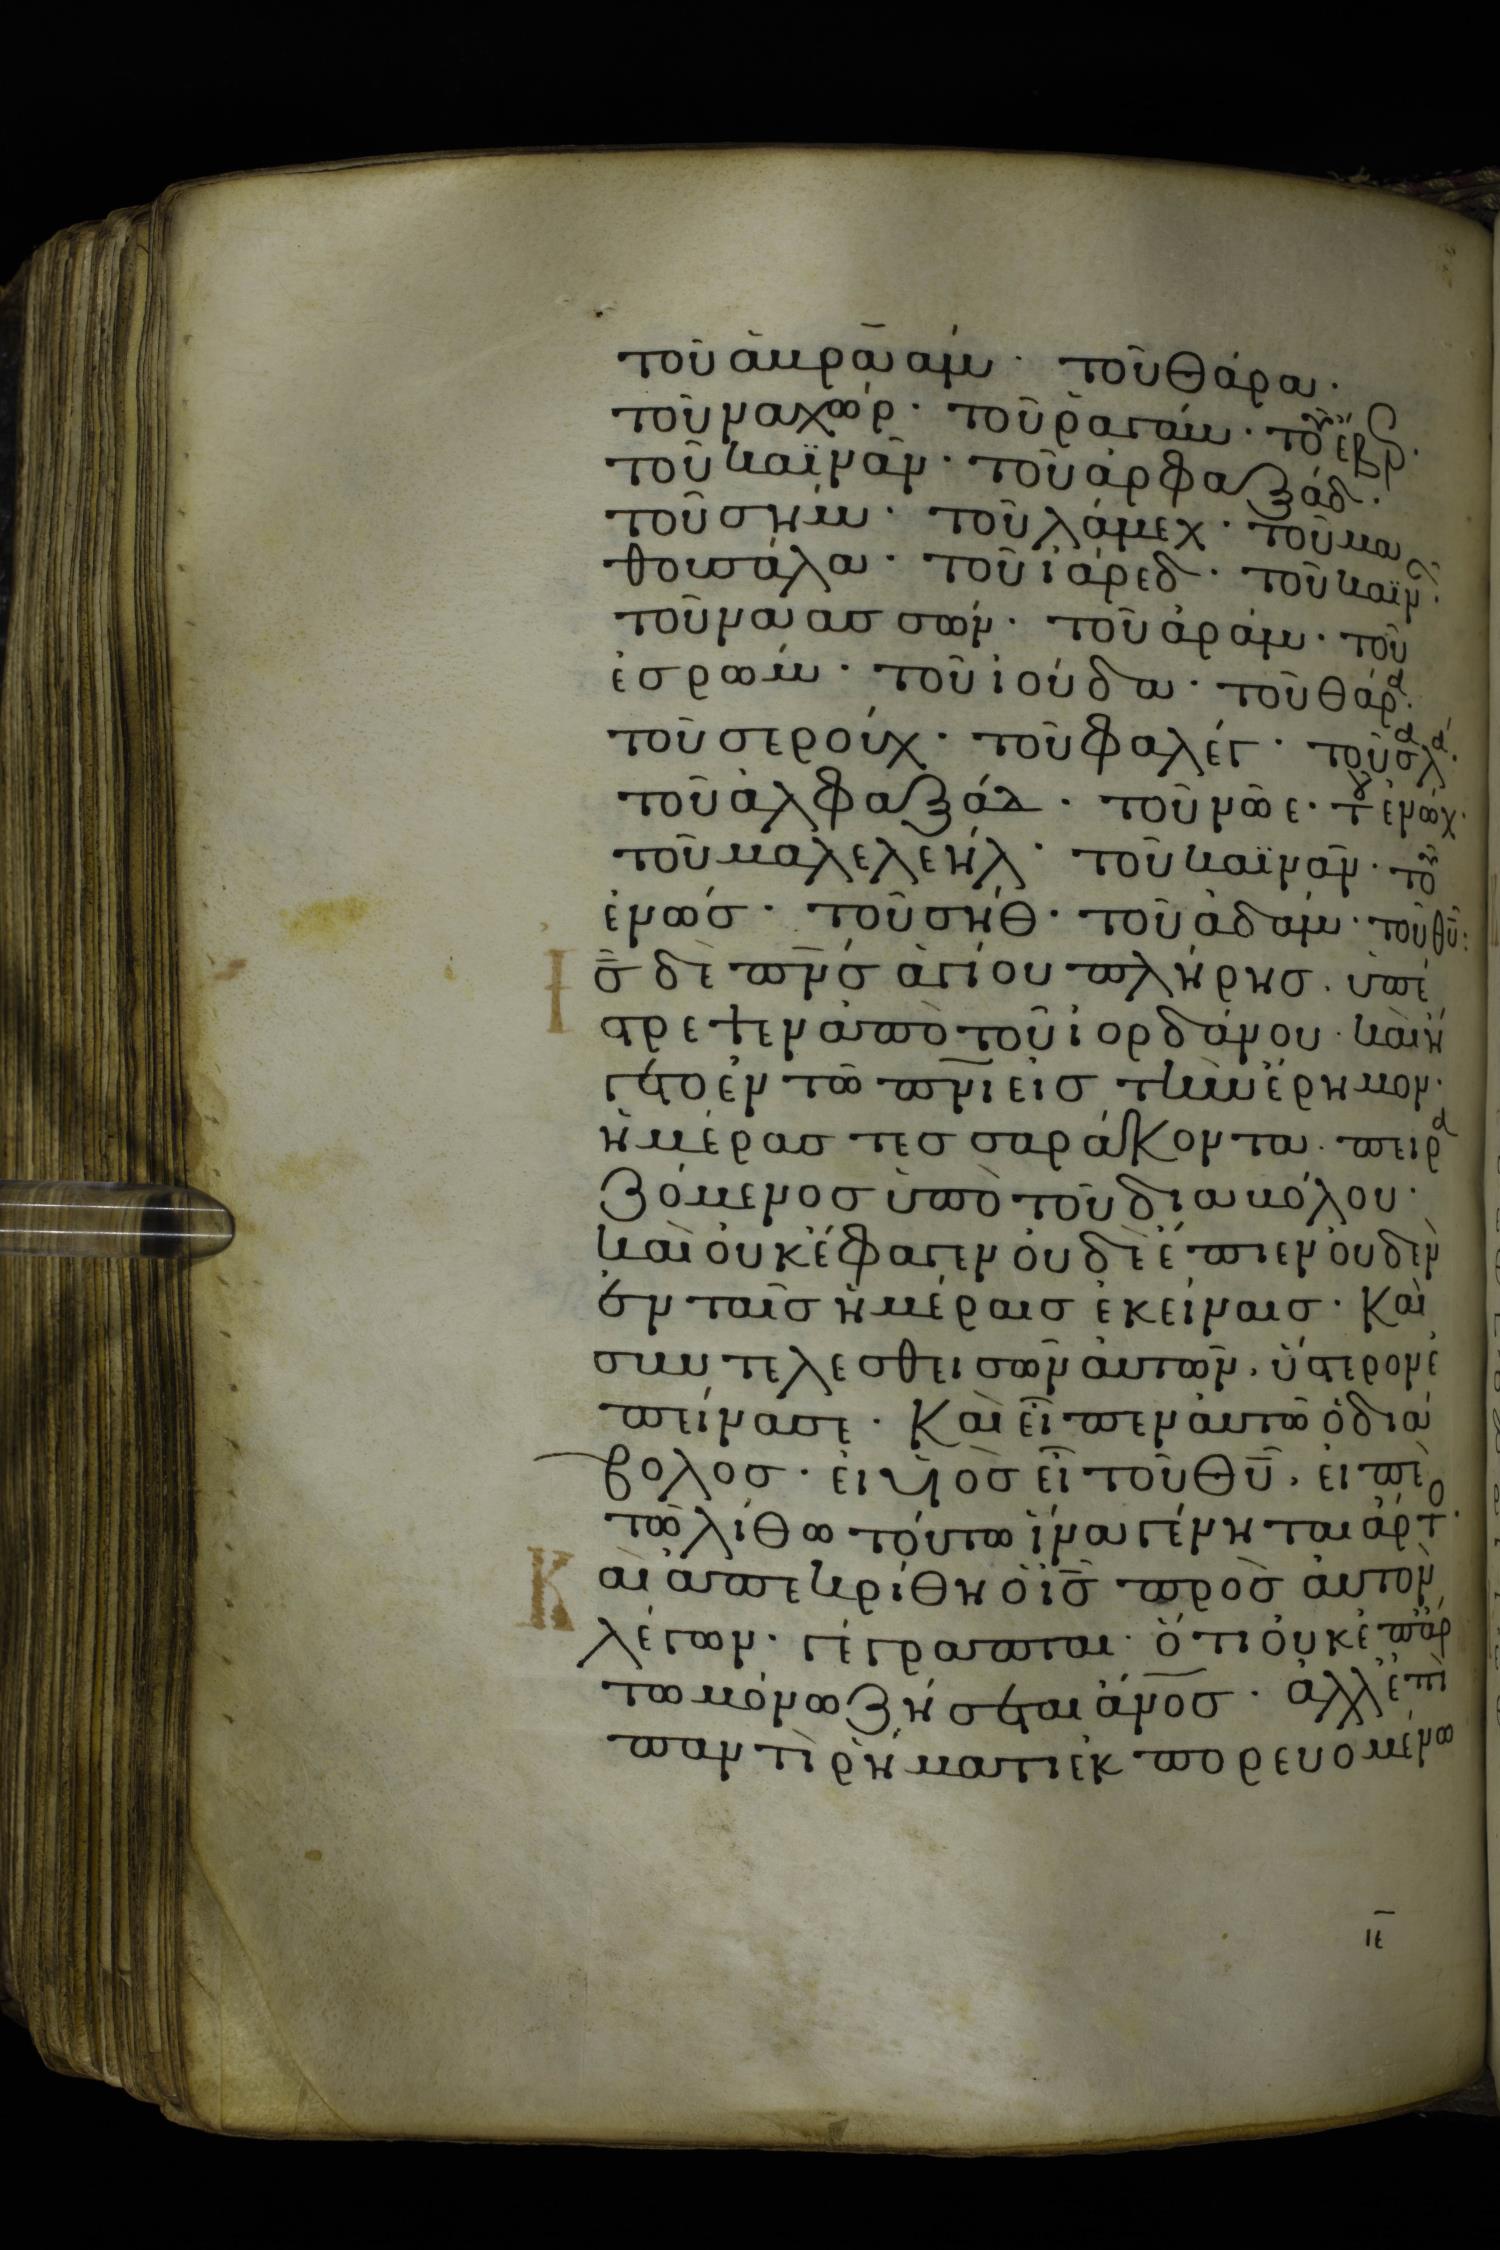 τοῦ ἀβραὰμ · τοῦ θάρα ·
τοῦ ναχώρ · τοῦ ῥαγαύ · τοῦ ἕβερ ·
τοῦ καϊνᾶν · τοῦ ἀρφαξάδ ·
τοῦ σήμ · τοῦ λάμεχ · τοῦ μα
θουσάλα · τοῦ ἰάρεδ · τοῦ καϊν ·
τοῦ ναασσών · τοῦ ἀράμ · τοῦ
ἐσρώμ · τοῦ ἰούδα · τοῦ θάρα ·
τοῦ σερούχ · τοῦ φαλέγ · τοῦ σαλά ·
τοῦ ἀλφαξάδ · τοῦ νῶε · τοῦ ἐνώχ ·
τοῦ μαλελεήλ · τοῦ καϊνᾶν · τοῦ
ἐνώσ · τοῦ σήθ · τοῦ ἀδάμ · τοῦ θυ :
Ισ δὲ πνσ ἁγίου πλήρησ · ὑπέ
στρεψεν ἀπὸ τοῦ ἰορδάνου · καὶ ἤ
γετο ἐν τῶ πνι εἰσ τὴν ἔρημον ·
ἡμέρασ τεσσαράκοντα · πειρα
ζόμενοσ ὑπὸ τοῦ διαβόλου ·
καὶ οὐκ ἔφαγεν οὐδὲ ἔπιεν οὐδὲν
ἐν ταῖσ ἡμέραισ ἐκείναισ · Καὶ
συντελεσθεισῶν αὐτῶν · ὕστερον ἐ
πείνασε · Καὶ εἶπεν αὐτῶ ὁ διά
βολος · εἰ υἱὸσ εἶ τοῦ θυ, εἰπὲ
τῶ λίθω τούτω ἵνα γένηται ἄρτο ·
Καὶ ἀπεκρίθη ὁ ισ πρὸσ αὐτὸν
λέγων · γέγραπται · ὅτι οὐκ ἐπ ἄρ
τω μόνω ζήσεται ἀνοσ · ἀλλ ἐπὶ
παντὶ ῥήματι ἐκπορευομένω
ιε